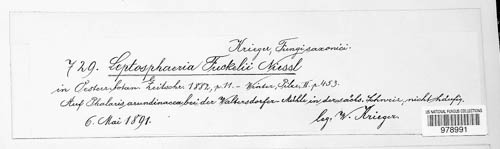 Krieger, Fungi saxonici.
729. Leptosphaeria Fuckelii Niessl
in Oesterr. botan. Zeitschr. 1882, p. 11. – Winter, Pilze, II. p. 453.
Auf Phalaris arundinacea bei der Waltersdorfer Mühle in der sächs. Schweiz, nicht häufig.
6. Mai 1891. leg. W. Krieger.
US NATIONAL FUNGUS COLLECTIONS
978991